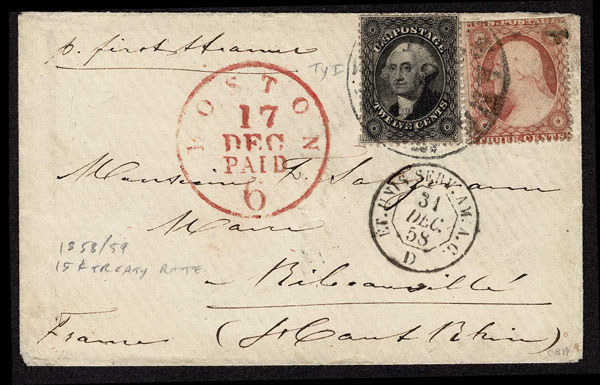 p. first Steamer
TY I
U.S. POSTAGE
TWELVE CENTS
U.S. POSTAGE
THREE CENTS
BOSTON
17
DEC
PAID
6
Monsieur
Maire
ET. UNIS SERV. AM. A.C.
31
DEC.
58
D
1858/59
15¢ TREATY RATE
a Ribeauvillé
France (Ht Haut Rhin)